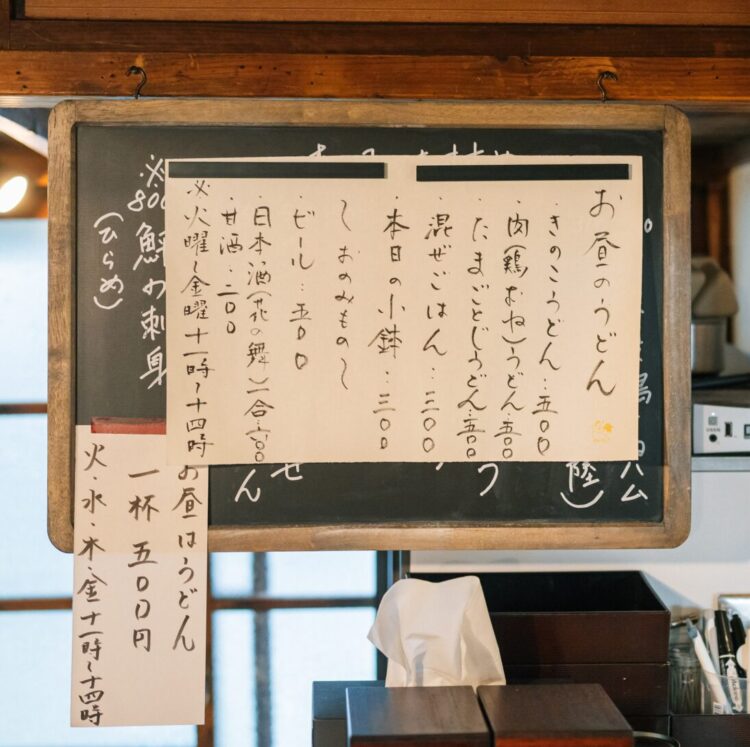 お昼のうどん
・きのこうどん・・五〇〇
・肉(鶏むね)うどん・・五〇〇
・たまごとじうどん・・五〇〇
・混ぜごはん・・三〇〇
・本日の小鉢・・三〇〇
〜おのみもの〜
・ビール・・五〇〇
・日本酒(花の舞)一合・・六〇〇
・甘酒・・二〇〇
※火曜〜金曜 十一時〜十四時
※
800
刺身
(ひらめ)
お昼はうどん
一杯 五〇〇円
火・水・木・金 十一時〜十四時